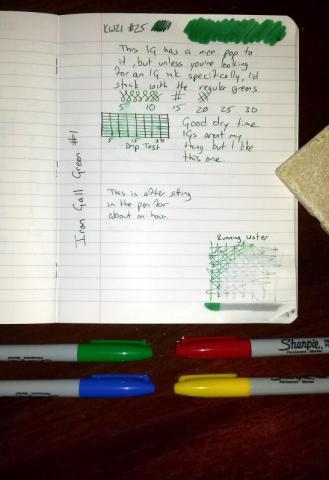 KWZI #25
This IG has a nice pop to
it, but unless you're looking
for an IG ink specifically, I'd
stick with the regular greens
#
5 10 15 20 25 30
Good dry time
IGs aren't my
thing but I like
this one.
5 30
Drip Test
Iron Gall Green #1
This is after sitting
in the pen for
about an hour.
Running Water
Sharpie
Permanent Marker